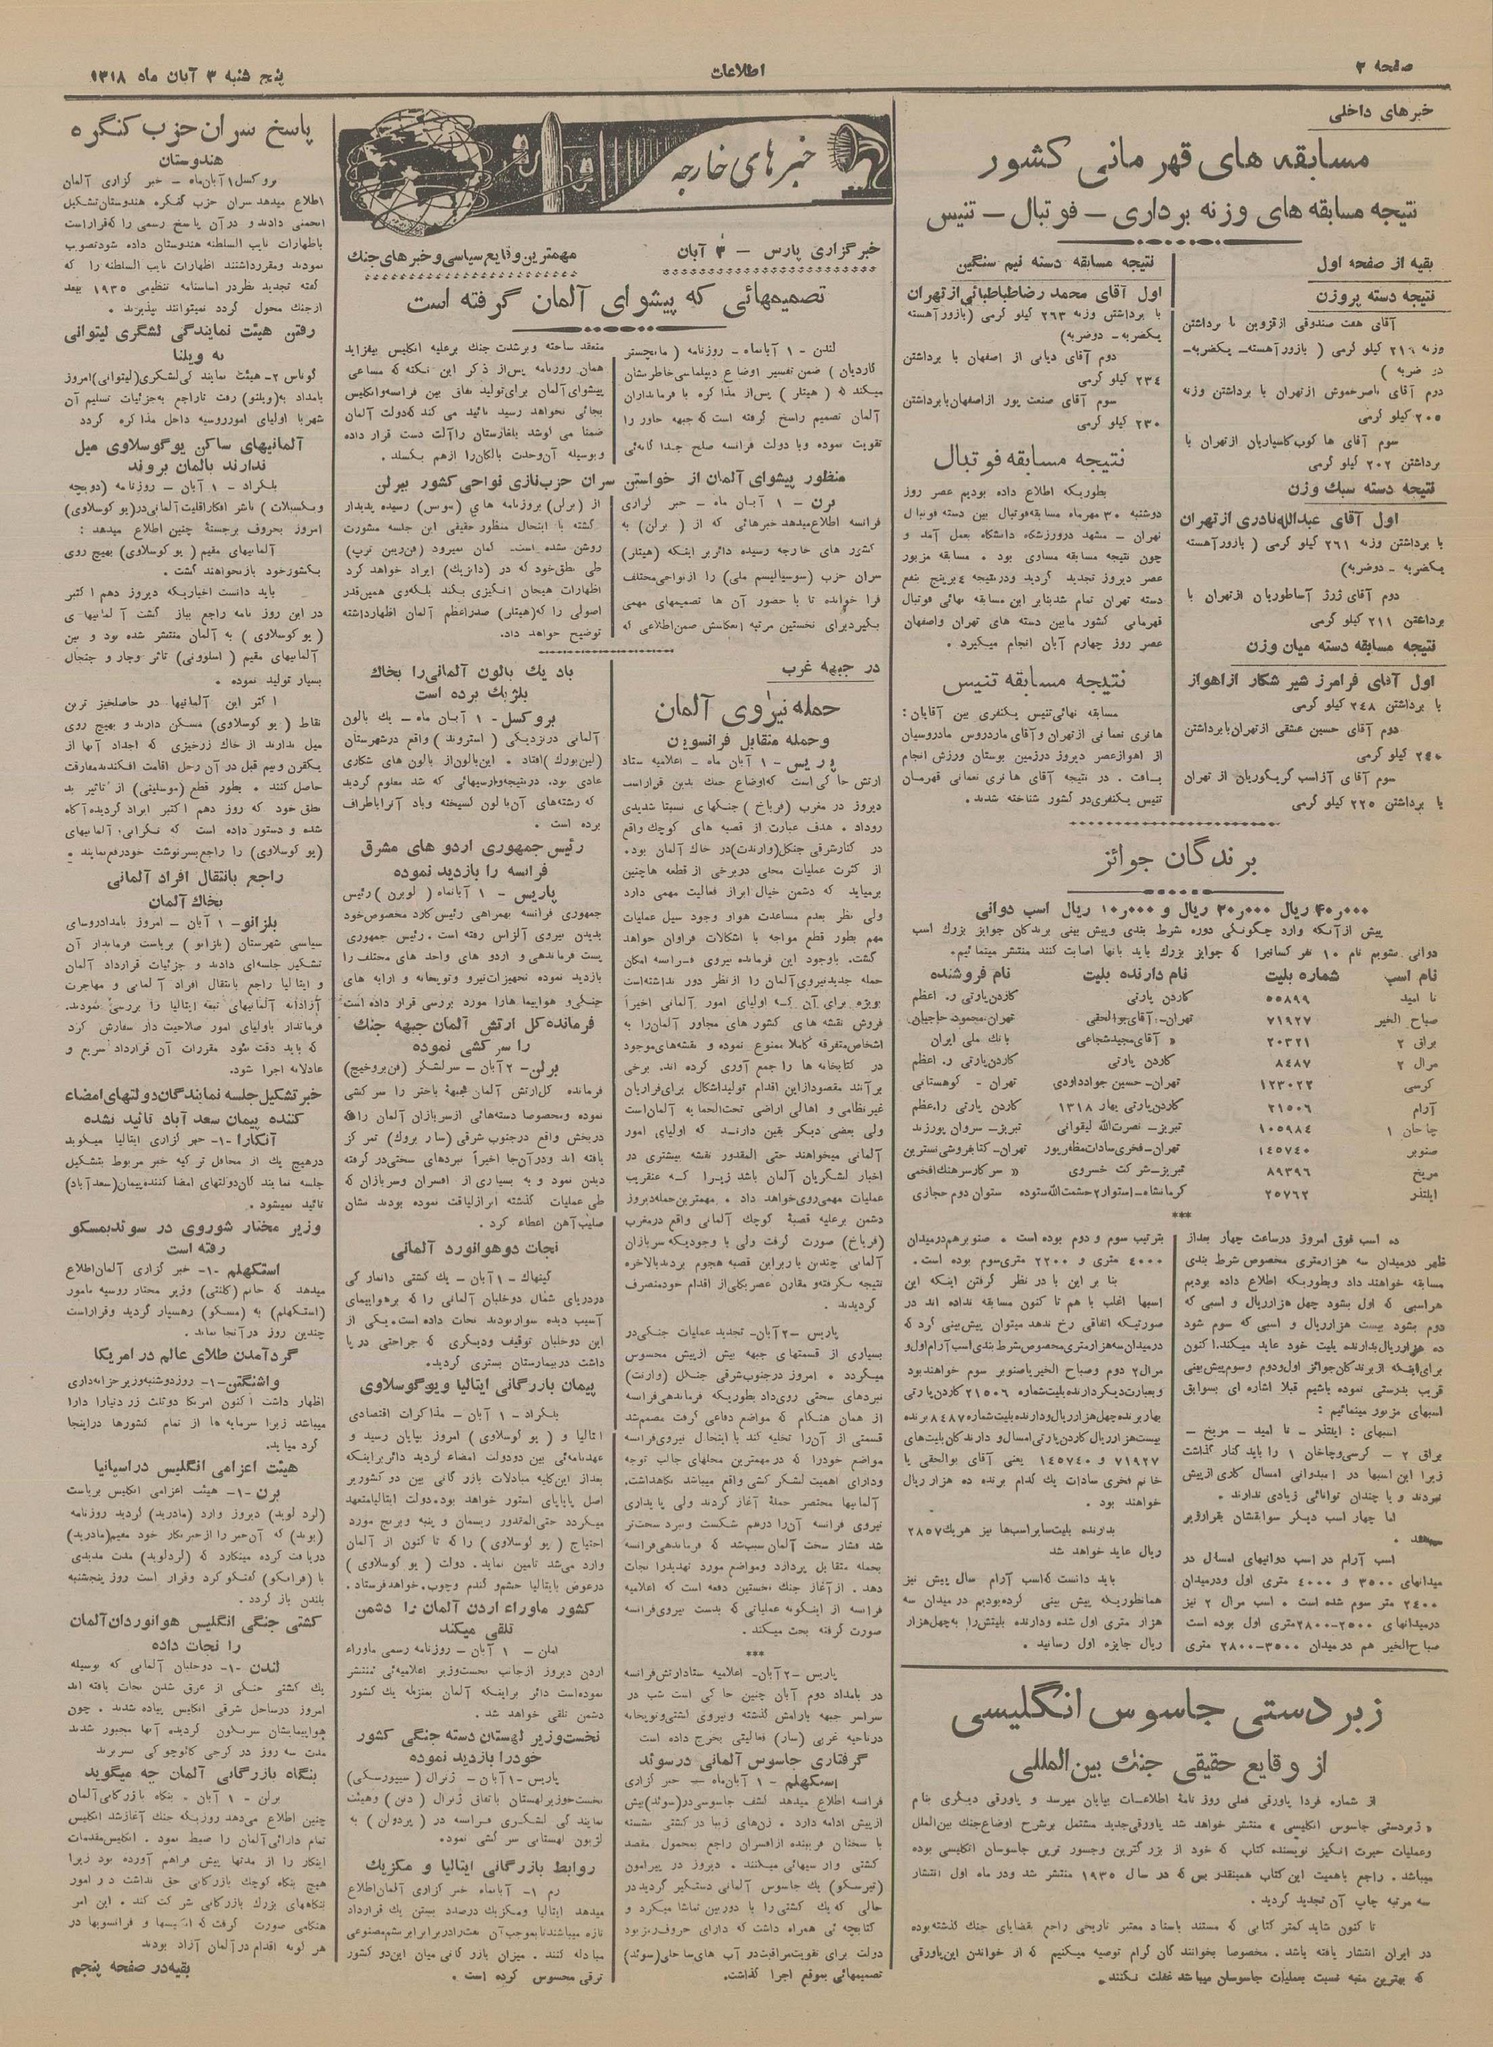 صفحه ۲
اطلاعات
پنج شنبه ۳ آبان ماه ۱۳۱۸
خبرهای داخلی
مسابقه های قهرمانی کشور
نتیجه مسابقه های وزنه برداری – فوتبال – تنیس
بقیه از صفحه اول
نتیجه دسته پروزن
آقای هفت صندوقی از قزوین با برداشتن
وزنه ۲۱۶ کیلو گرمی ( بازور آهسته – یکضربه –
دو ضربه )
دوم آقای ناصر خموش از تهران با برداشتن وزنه
۲۰۵ کیلو گرمی
سوم آقای هاکوب کاسپاریان از تهران با
برداشتن ۲۰۲ کیلو گرمی
نتیجه دسته سبک وزن
اول آقای عبدالله نادری از تهران
با برداشتن وزنه ۲۶۱ کیلو گرمی ( بازور آهسته
یکضربه – دوضربه )
دوم آقای ژرژ آساطوریان از تهران با
برداشتن ۲۱۱ کیلو گرمی
نتیجه مسابقه دسته میان وزن
اول آقای فرامرز شیر شکار از اهواز
با برداشتن ۲۴۸ کیلو گرمی
دوم آقای حسین عشقی از تهران با برداشتن
۲۴۰ کیلو گرمی
سوم آقای آزاسب گریگوریان از تهران
با برداشتن ۲۲۵ کیلو گرمی
نتیجه مسابقه دسته نیم سنگین
اول آقای محمد رضا طباطبائی از تهران
با برداشتن وزنه ۲۶۳ کیلو گرمی (بازور آهسته
یکضربه – دوضربه)
دوم آقای دیانی از اصفهان با برداشتن
۲۳۴ کیلو گرمی
سوم آقای صنعت پور از اصفهان با برداشتن
۲۳۰ کیلو گرمی
نتیجه مسابقه فوتبال
بطوریکه اطلاع داده بودیم عصر روز
دوشنبه ۳۰ مهرماه مسابقه فوتبال بین دسته فوتبال
تهران – مشهد در ورزشگاه دانشگاه بعمل آمد و
چون نتیجه مسابقه مساوی بود . مسابقه مزبور
عصر دیروز تجدید گردید و در نتیجه ۴ بر پنج بنفع
دسته تهران تمام شد بنابر این مسابقه نهائی فوتبال
قهرمانی کشور مابین دسته های تهران و اصفهان
عصر روز چهارم آبان انجام میگیرد .
نتیجه مسابقه تنیس
مسابقه نهائی تنیس یکنفری بین آقایان :
هانری نعمانی از تهران و آقای ماردروس مادروسیان
از اهواز عصر دیروز در زمین بوستان ورزش انجام
یافت . در نتیجه آقای هانری نعمانی قهرمان
تنیس یکنفری در کشور شناخته شدند .
برندگان جوائز
۴۰٫۰۰۰ ریال ۲۰٫۰۰۰ ریال و ۱۰٫۰۰۰ ریال اسب دوانی
پیش از آنکه وارد چگونگی دوره شرط بندی و پیش بینی برندگان جوایز بزرگ اسب
دوانی شویم نام ۱۰ نفر کسانیرا که جوایز بزرگ باید بآنها اصابت کنند منتشر مینمائیم .
نام اسب شماره بلیت نام دارنده بلیت نام فروشنده
نا امید ۵۵۸۹۹ گاردن پارتی گاردن پارتی ر. اعظم
صباح الخیر ۷۱۹۲۷ تهران – آقای بوالحقی تهران محمود حاجیان
براق ۲ ۲۰۳۲۱ « آقای مجید شجاعی بانک ملی ایران
مرال ۲ ۸۴۸۷ گاردن پارتی گاردن پارتی ر. اعظم
کرسی ۱۲۳۰۲۲ تهران – حسین جواد داودی تهران – کوهستانی
آرام ۲۱۵۰۶ گاردن پارتی بهار ۱۳۱۸ گاردن پارتی ر. اعظم
چاخان ۱ ۱۰۵۹۸۴ تبریز – نصرت الله لیقوانی تبریز – سروان پورزند
صنوبر ۱۴۵۷۴۰ تهران – فخری سادات مظهرپور تهران – کتابفروشی نسترین
مریخ ۸۹۳۹۶ تبریز – شرکت خسروی « سرکار سرهنگ افخمی
ایلتذر ۲۵۷۶۲ کرمانشاه – استوار ۲ حشمت الله ستوده ستوان دوم حجازی
***
ده اسب فوق امروز در ساعت چهار بعد از
ظهر در میدان سه هزار متری مخصوص شرط بندی
مسابقه خواهند داد و بطوریکه اطلاع داده بودیم
هر اسبی که اول بشود چهل هزار ریال و اسبی که
دوم بشود بیست هزار ریال و اسبی که سوم شود
ده هزار ریال بدارنده بلیت خود عاید میکند. اکنون
برای اینکه از برندگان جوائز اول و دوم و سوم پیش بینی
قریب بدرستی نموده باشیم قبلا اشاره ای بسوابق
اسبهای مزبور مینمائیم :
اسبهای : ایلتذر – نا امید – مریخ –
براق ۲ – کرسی و چاخان ۱ را باید کنار گذاشت
زیرا این اسبها در اسبدوانی امسال کاری از پیش
نبردند و یا چندان توانائی زیادی ندارند .
اما چهار اسب دیگر سوابقشان بقرار زیر

اسب آرام در اسب دوانیهای امسال در
میدانهای ۳۵۰۰ و ۴۰۰۰ متری اول و در میدان
۲۴۰۰ متر سوم شده است . اسب مرال ۲ نیز
در میدانهای ۲۵۰۰–۲۸۰۰ متری اول بوده است
صباح الخیر هم در میدان ۳۵۰۰–۲۸۰۰ متری
بترتیب سوم و دوم بوده است . صنوبر هم در میدان
۴۰۰۰ متری و ۲۲۰۰ متری سوم بوده است .
بنا بر این با در نظر گرفتن اینکه این
اسبها اغلب با هم تا کنون مسابقه نداده اند در
صورتیکه اتفاقی رخ ندهد میتوان پیش بینی کرد که
در میدان سه هزار متری مخصوص شرط بندی اسب آرام اول و
مرال ۲ دوم و صباح الخیر یا صنوبر سوم خواهند بود
و بعبارت دیگر دارنده بلیت شماره ۲۱۵۰۶ گاردن پارتی
بهار برنده چهل هزار ریال و دارنده بلیت شماره ۸۴۸۷ برنده
بیست هزار ریال گاردن پارتی امسال و دارندگان بلیت های
۷۱۹۲۷ و ۱۴۵۷۴۰ یعنی آقای بوالحقی یا
خانم فخری سادات یک کدام برنده ده هزار ریال
خواهند بود .
بدارنده بلیت سایر اسب ها نیز هر یک ۲۸۵۷
ریال عاید خواهد شد
باید دانست که اسب آرام سال پیش نیز
همانطوریکه پیش بینی کرده بودیم در میدان سه
هزار متری اول شده و دارنده بلیتش را به چهل هزار
ریال جایزه اول رسانید .
زبر دستی جاسوس انگلیسی
از وقایع حقیقی جنگ بین المللی
از شماره فردا پاورقی فعلی روزنامهٔ اطلاعات بپایان میرسد و پاورقی دیگری بنام
« زبردستی جاسوس انگلیسی » منتشر خواهد شد پاورقی جدید مشتمل بر شرح اوضاع جنگ بین الملل
و عملیات حیرت انگیز نویسنده کتاب که خود از بزرگترین و جسور ترین جاسوسان انگلیسی بوده
میباشد . راجع باهمیت این کتاب همینقدر بس که در سال ۱۹۳۵ منتشر شد و در ماه اول انتشار
سه مرتبه چاپ آن تجدید گردید .
تا کنون شاید کمتر کتابی که مستند باسناد معتبر تاریخی راجع بقضایای جنگ گذشته بوده
در ایران انتشار یافته باشد . مخصوصا بخوانندگان گرام توصیه میکنیم که از خواندن این پاورقی
که بهترین منبه نسبت بعملیات جاسوسان میباشد غفلت نکنند .
خبرهای خارجه
خبرگزاری پارس – ۳ آبان
مهمترین وقایع سیاسی و خبرهای جنگ
تصمیمهائی که پیشوای آلمان گرفته است
لندن – ۱ آبانماه – روزنامه ( مانچستر
گاردیان ) ضمن تفسیر اوضاع دیپلماسی خاطر نشان
میکند که ( هیتلر ) پس از مذاکره با فرمانداران
آلمان تصمیم راسخ گرفته است که جبهه خاور را
تقویت نموده و با دولت فرانسه صلح جداگانه‌ئی
منعقد ساخته و بر شدت جنگ بر علیه انگلیس بیفزاید
همان روزنامه پس از ذکر این نکته که مساعی
پیشوای آلمان برای تولید نفاق بین فرانسه و انگلیس
بجائی نخواهد رسید تائید می کند که دولت آلمان
ضمنا می کوشد بلغارستان را آلت دست قرار داده
و بوسیله آن وحدت بالکان را از هم بگسلد .
منظور پیشوای آلمان از خواستن سران حزب نازی نواحی کشور ببرلن
برن – ۱ آبان ماه – خبر گزاری
فرانسه اطلاع میدهد خبرهائی که از ( برلن ) به
کشور های خارجه رسیده دائر بر اینکه (هیتلر)
سران حزب (سوسیالیسم ملی) را از نواحی مختلف
فرا خوانده تا با حضور آن ها تصمیمهای مهمی
بگیرد برای نخستین مرتبه انعکاس ضمن اطلاعی که
از (برلن) بروزنامه های (سوس) رسیده پدیدار
گشته با اینحال منظور حقیقی این جلسه مشورت
روشن نشده است. گمان میرود (فن ریبن تروپ)
طی نطق خود که در (دانزیک) ایراد خواهد کرد
اظهارات هیجان انگیزی بکند بلکه وی همین قدر
اصولی را که (هیتلر) صدر اعظم آلمان اظهار داشته
توضیح خواهد داد .
در جبهه غرب
حمله نیروی آلمان
و حمله متقابل فرانسویان
پاریس – ۱ آبان ماه – اعلامیه ستاد
ارتش حاکی است که اوضاع جنگ بدین قرار است
دیروز در مغرب (فرباخ) جنگهای نسبتا شدیدی
رویداد . هدف عبارت از قصبه های کوچک واقع
در کنار شرقی جنگل (وارندت) در خاک آلمان بود .
از کثرت عملیات محلی در برخی از قطعه ها چنین
برمیاید که دشمن خیال ابراز فعالیت مهمی دارد
ولی نظر بعدم مساعدت هوا و وجود سیل عملیات
مهم بطور قطع مواجه با اشکالات فراوان خواهد
گشت . باوجود این فرمانده نیروی فرانسه امکان
حمله جدید نیروی آلمان را از نظر دور نداشته است
بویژه برای آن که اولیای امور آلمانی اخیراً
فروش نقشه های کشور های مجاور آلمان را به
اشخاص متفرقه کاملا ممنوع نموده و نقشه‌های موجود
در کتابخانه ها را جمع آوری کرده اند . برخی
برآنند مقصود از این اقدام تولید اشکال برای فراریان
غیر نظامی و اهالی اراضی تحت الحمایه آلمان است
ولی بعضی دیگر یقین دارند که اولیای امور
آلمانی میخواهند حتی المقدور نقشه بیشتری در
اختیار لشگریان آلمان باشد زیرا که عنقریب
عملیات مهمی روی خواهد داد . مهمترین حمله دیروز
دشمن بر علیه قصبهٔ کوچک آلمانی واقع در مغرب
(فرباخ) صورت گرفت ولی با وجودیکه سربازان
آلمانی چندین بار براین قصبه هجوم بردند بالاخره
نتیجه نگرفته و مقارن عصر بکلی از اقدام خود منصرف
گردیدند .
پاریس –۲ آبان– تجدید عملیات جنگی در
بسیاری از قسمتهای جبهه بیش از پیش محسوس
میگردد . امروز در جنوب شرقی جنگل (وارنت)
نبردهای سختی روی داد بطوریکه فرماندهی فرانسه
از همان هنگام که مواضع دفاعی گرفت مصمم شد
قسمتی از آن را تخلیه کند با اینحال نیروی فرانسه
مواضع خود را که در مهمترین محلهای جالب توجه
و دارای اهمیت لشگر کشی واقع میباشد نگاهداشت .
آلمانیها مختصر حمله آغاز کردند ولی پایداری
نیروی فرانسه آن را درهم شکست و نبرد سخت تر
شد فشار سخت آلمان سبب شد که فرماندهی فرانسه
بحمله متقابل پردازد و مواضع مورد تهدید را نجات
دهد . از آغاز جنگ نخستین دفعه است که اعلامیه
فرانسه از اینگونه عملیاتی که بدست نیروی فرانسه
صورت گرفته بحث میکند .
***
پاریس –۲ آبان– اعلامیه ستاد ارتش فرانسه
در بامداد دوم آبان چنین حاکی است شب در
سراسر جبهه بآرامش گذشته و نیروی گشتی و توپخانه
در ناحیه غربی (سار) فعالیتی بخرج داده است
گرفتاری جاسوس آلمانی در سوئد
استکهلم – ۱ آبان ماه – خبر گزاری
فرانسه اطلاع میدهد کشف جاسوسی در (سوئد) بیش
از پیش ادامه دارد . زن های زیبا در کشتی نشسته
با سخنان فریبنده از افسران راجع بمحمول مقصد
کشتی وارسیهائی میکنند . دیروز در پیرامون
(تیرسکو) یک جاسوس آلمانی دستگیر گردید در
حالی که یک کشتی را با دوربین تماشا میکرد و
کتابچه ئی همراه داشت که دارای حروف رمز بود
دولت برای تقویت مراقبت در آب های ساحلی (سوئد)
تصمیمهائی بموقع اجرا گذاشت .
باد یک بالون آلمانی را بخاک
بلژیک برده است
بروکسل – ۱ آبان ماه – یک بالون
آلمانی در نزدیکی ( استروند ) واقع در شهرستان
(لین بورک ) افتاد . این بالون از بالون های شکاری
عادی بود . در نتیجه وارسیهائی که شد معلوم گردید
که رشته های آن بالون گسیخته و باد آنرا باطراف
برده است .
رئیس جمهوری اردو های مشرق
فرانسه را بازدید نموده
پاریس – ۱ آبانماه ( لوبرن ) رئیس
جمهوری فرانسه بهمراهی رئیس گارد مخصوص خود
بدیدن نیروی آلزاس رفته است . رئیس جمهوری
پست فرماندهی و اردو های واحد های مختلف را
بازدید نموده تجهیزات نیرو و توپخانه و ارابه های
جنگی و هواپیماها را مورد بررسی قرار داده است
فرمانده کل ارتش آلمان جبهه جنگ
را سرکشی نموده
برلن – ۲ آبان – سرلشگر (فن بروخیچ)
فرمانده کل ارتش آلمان جبهه باختر را سر کشی
نموده و مخصوصا دسته هائی از سربازان آلمان را که
در بخش واقع در جنوب شرقی (سار بروک) تمرکز
یافته اند و در آن جا اخیراً نبردهای سختی در گرفته
دیدن نمود و به بسیاری از افسران و سربازان که
طی عملیات گذشته ابراز لیاقت نموده بودند نشان
صلیب آهن اعطاء کرد .
نجات دو هوانورد آلمانی
کپنهاک – ۱ آبان – یک کشتی دانمارکی
در دریای شمال دو خلبان آلمانی را که بر هواپیمای
آسیب دیده سوار بودند نجات داده است . یکی از
این دو خلبان توقیف و دیگری که جراحتی در پا
داشت در بیمارستان بستری گردید .
پیمان بازرگانی ایتالیا و یوگوسلاوی
بلگراد – ۱ آبان – مذاکرات اقتصادی
ایتالیا و ( یوگوسلاوی ) امروز بپایان رسید و
عهدنامه‌ئی بین دو دولت امضاء گردید دائر بر اینکه
بعد از این کلیه مبادلات بازرگانی بین دو کشور بر
اصل پایاپای استور خواهد بود . دولت ایتالیا متعهد
میگردد حتی المقدور ریسمان و پنبه و برنج مورد
احتیاج ( یوگوسلاوی ) را که تا کنون از آلمان
وارد می شد تامین نماید . دولت ( یوگوسلاوی )
در عوض بایتالیا حشم و گندم و چوب . خواهد فرستاد .
کشور ماوراء اردن آلمان را دشمن
تلقی میکند
امان – ۱ آبان – روزنامه رسمی ماوراء
اردن دیروز از جانب نخست وزیر اعلامیه ئی منتشر
نموده است دائر بر اینکه آلمان بمنزله یک کشور
دشمن تلقی خواهد شد .
نخست وزیر لهستان دسته جنگی کشور
خود را بازدید نموده
پاریس – ۱ آبان – ژنرال ( سیپورسکی )
نخست وزیر لهستان باتفاق ژنرال ( دنن ) و هیئت
نمایندگی لشگری فرانسه در ( پردوان ) به
لژیون لهستانی سرکشی نمود .
روابط بازرگانی ایتالیا و مکزیک
رم ۱– آبانماه خبر گزاری آلمان اطلاع
میدهد ایتالیا و مکزیک درصدد بستن یک قرارداد
تازه میباشند تا بموجب آن نفت را در برابر ابریشم مصنوعی
مبادله کنند . میزان بازرگانی میان این دو کشور
ترقی محسوس کرده است .
پاسخ سران حزب کنگره
هندوستان
بروکسل ۱ آبان ماه – خبر گزاری آلمان
اطلاع میدهد سران حزب کنگره هندوستان تشکیل
انجمنی دادند و در آن پاسخ رسمی را که قرار است
باظهارات نایب السلطنه هندوستان داده شود تصویب
نمودند و مقرر داشتند اظهارات نایب السلطنه را که
گفته تجدید نظر در اساسنامه تنظیمی ۱۹۳۵ ببعد
از جنگ محول گردد نمیتوانند بپذیرند .
رفتن هیئت نمایندگی لشگری لیتوانی
به ویلنا
کوناس ۲– هیئت نمایندگی لشگری (لیتوانی) امروز
بامداد به (ویلنو) رفت تا راجع به جزئیات تسلیم آن
شهر با اولیای امور روسیه داخل مذاکره گردد
آلمانیهای ساکن یوگوسلاوی میل
ندارند بآلمان بروند
بلگراد – ۱ آبان – روزنامه (دویچه
و یکسبلات ) ناشر افکار اقلیت آلمانی در (یوگوسلاوی)
امروز بحروف برجستهٔ چنین اطلاع میدهد :
آلمانیهای مقیم (یوگوسلاوی) بهیچ روی
بکشور خود باز نخواهند گشت .
باید دانست اخباریکه دیروز دهم اکتبر
در این روزنامه راجع بباز گشت آلمانیهای
(یوگوسلاوی ) به آلمان منتشر شده بود و بین
آلمانیهای مقیم ( اسلوونی ) تاثر و جار و جنجال
بسیار تولید نموده .
اکثر این آلمانیها در حاصلخیز ترین
نقاط ( یوگوسلاوی ) مسکن دارند و بهیچ روی
میل ندارند از خاک زرخیزی که اجداد آنها از
یکقرن و نیم قبل در آن رحل اقامت افکندند مفارقت
حاصل کنند . بطور قطع (موسلینی) از تاثیر بد
نطق خود که روز دهم اکتبر ایراد گردیده آگاه
شده و دستور داده است که نگرانی آلمانیهای
(یوگوسلاوی) را راجع بسرنوشت خود رفع نمایند .
راجع بانتقال افراد آلمانی
بخاک آلمان
بلزانو – ۱ آبان – امروز بامداد روسای
سیاسی شهرستان (بلزانو) بریاست فرماندار آن
تشکیل جلسه ای دادند و جزئیات قرارداد آلمان
و ایتالیا راجع بانتقال افراد آلمانی و مهاجرت
آزادانه آلمانیهای تبعه ایتالیا را بررسی نمودند.
فرماندار باولیای امور صلاحیت دار سفارش کرد
که باید دقت شود مقررات آن قرارداد سریع و
عادلانه اجرا شود .
خبر تشکیل جلسه نمایندگان دولتهای امضاء
کننده پیمان سعد آباد تائید نشده
آنکارا –۱– خبر گزاری ایتالیا میگوید
در هیچ یک از محافل ترکیه خبر مربوط بتشکیل
جلسه نمایندگان دولتهای امضا کننده پیمان (سعدآباد)
تائید نمیشود .
وزیر مختار شوروی در سوئد بمسکو
رفته است
استکهلم –۱– خبر گزاری آلمان اطلاع
میدهد که خانم (کلنتی) وزیر مختار روسیه مامور
(استکهلم) به (مسکو) رهسپار گردید و قرار است
چندین روز در آنجا بماند .
گرد آمدن طلای عالم در امریکا
واشنگتن –۱– روز دوشنبه وزیر خزانه داری
اظهار داشت اکنون امریکا دو ثلث زر دنیا را دارا
میباشد زیرا سرمایه ها از تمام کشورها در اینجا
گرد میاید .
هیئت اعزامی انگلیس در اسپانیا
برن –۱– هیئت اعزامی انگلیس بریاست
(لرد لوید) دیروز وارد (مادرید) گردید روزنامه
(بوند) که آن خبر را از خبرنگار خود مقیم (مادرید)
دریافت کرده مینگارد که (لرد لوید) مدت مدیدی
با (فرانکو) گفتگو کرد و قرار است روز پنجشنبه
بلندن باز گردد .
کشتی جنگی انگلیس هوانوردان آلمان
را نجات داده
لندن –۱– دو خلبان آلمانی که بوسیله
یک کشتی جنگی از غرق شدن نجات یافته اند
امروز در ساحل شرقی انگلیس پیاده شدند . چون
هواپیمایشان سرنگون گردیده آنها مجبور شدند
مدت سه روز در کرجی کائوچوکی بسر برند
بنگاه بازرگانی آلمان چه میگوید
برلن – ۱ آبان . بنگاه بازرگانی آلمان
چنین اطلاع می دهد روزیکه جنگ آغاز شد انگلیس
تمام دارائی آلمان را ضبط نمود . انگلیس مقدمات
اینکار را از مدتها پیش فراهم آورده بود زیرا
هیچ بنگاه کوچک بازرگانی حق نداشت در امور
بنگاههای بزرگ بازرگانی شرکت کند . این امر
هنگامی صورت گرفت که انگلیسها و فرانسویها در
هر گونه اقدام در آلمان آزاد بودند
بقیه در صفحه پنجم